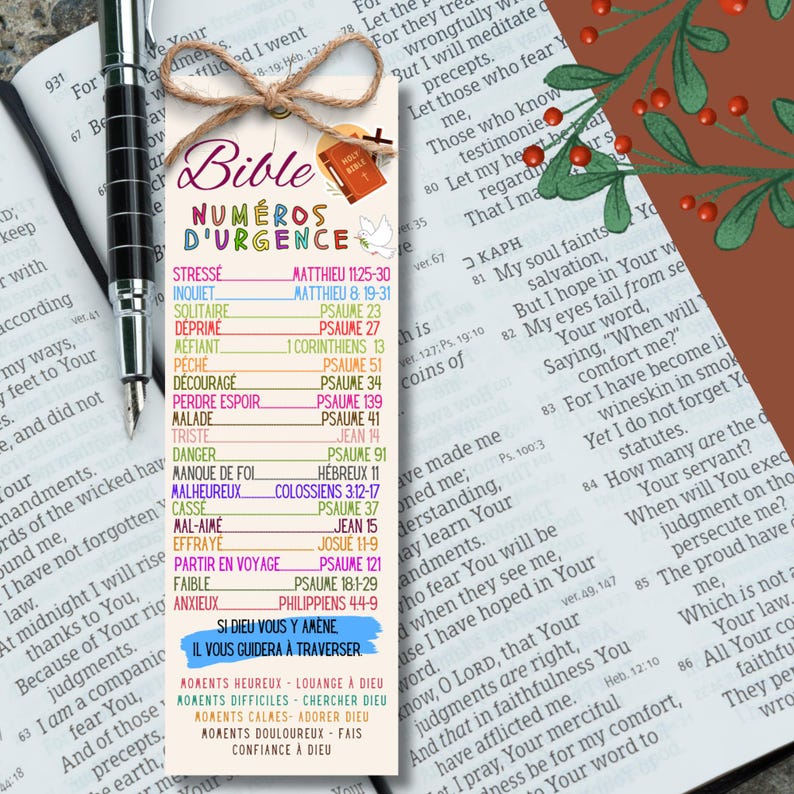 Bible
HOLY BIBLE
NUMÉROS
D'URGENCE
STRESSÉ MATTHIEU 11:25-30
INQUIET MATTHIEU 8: 19-31
SOLITAIRE PSAUME 23
DÉPRIMÉ PSAUME 27
MÉFIANT 1 CORINTHIENS 13
PÉCHÉ PSAUME 51
DÉCOURAGÉ PSAUME 34
PERDRE ESPOIR PSAUME 139
MALADE PSAUME 41
TRISTE JEAN 14
DANGER PSAUME 91
MANQUE DE FOI HÉBREUX 11
MALHEUREUX COLOSSIENS 3:12-17
CASSÉ PSAUME 37
MAL-AIMÉ JEAN 15
EFFRAYÉ JOSUÉ 1:1-9
PARTIR EN VOYAGE PSAUME 121
FAIBLE PSAUME 18:1-29
ANXIEUX PHILIPPIENS 4:4-9
SI DIEU VOUS Y AMÈNE,
IL VOUS GUIDERA À TRAVERSER.
MOMENTS HEUREUX - LOUANGE À DIEU
MOMENTS DIFFICILES - CHERCHER DIEU
MOMENTS CALMES- ADORER DIEU
MOMENTS DOULOUREUX - FAIS
CONFIANCE À DIEU
931
keep
according
ver.41
my ways,
feet to Your
e, and did not
mandments.
ords of the wicked have
ound me,
I have not forgotten Your
law.
At midnight I will rise
thanks to You,
Because of Your
judgments.
I am a companion
fear You,
And of those
precepts.
the earth
63
67
Heb. 12:10
I went
precepts.
Let those who fear You
Those who know
testimonies
80
Let my heart be
regard
Your
That I may
ver.67
כ KAPH
81 My soul faints
salvation,
But I hope in Your word
82 My eyes fail from
Your word,
Saying, “When will
comfort me?”
83 For I have become like
wineskin in smoke
Yet I do not forget
statutes.
84 How many are the
Your servant?
When will You execute
judgment on
persecute me?
85 The proud have
me,
Which is not
Your law.
86 All Your
faithful
They persecute
wrongfully
But I will meditate
ver.127; Ps. 19:10
coins of
have made me
Ps. 100:3
who fear You will be
when they see me,
I have hoped in Your
ver. 49, 147
know, O LORD, that Your
judgments are right,
And that in faithfulness You
have afflicted me.
Heb. 12:10
Let, I pray, Your merciful
kindness be for my comfort,
According to Your word to